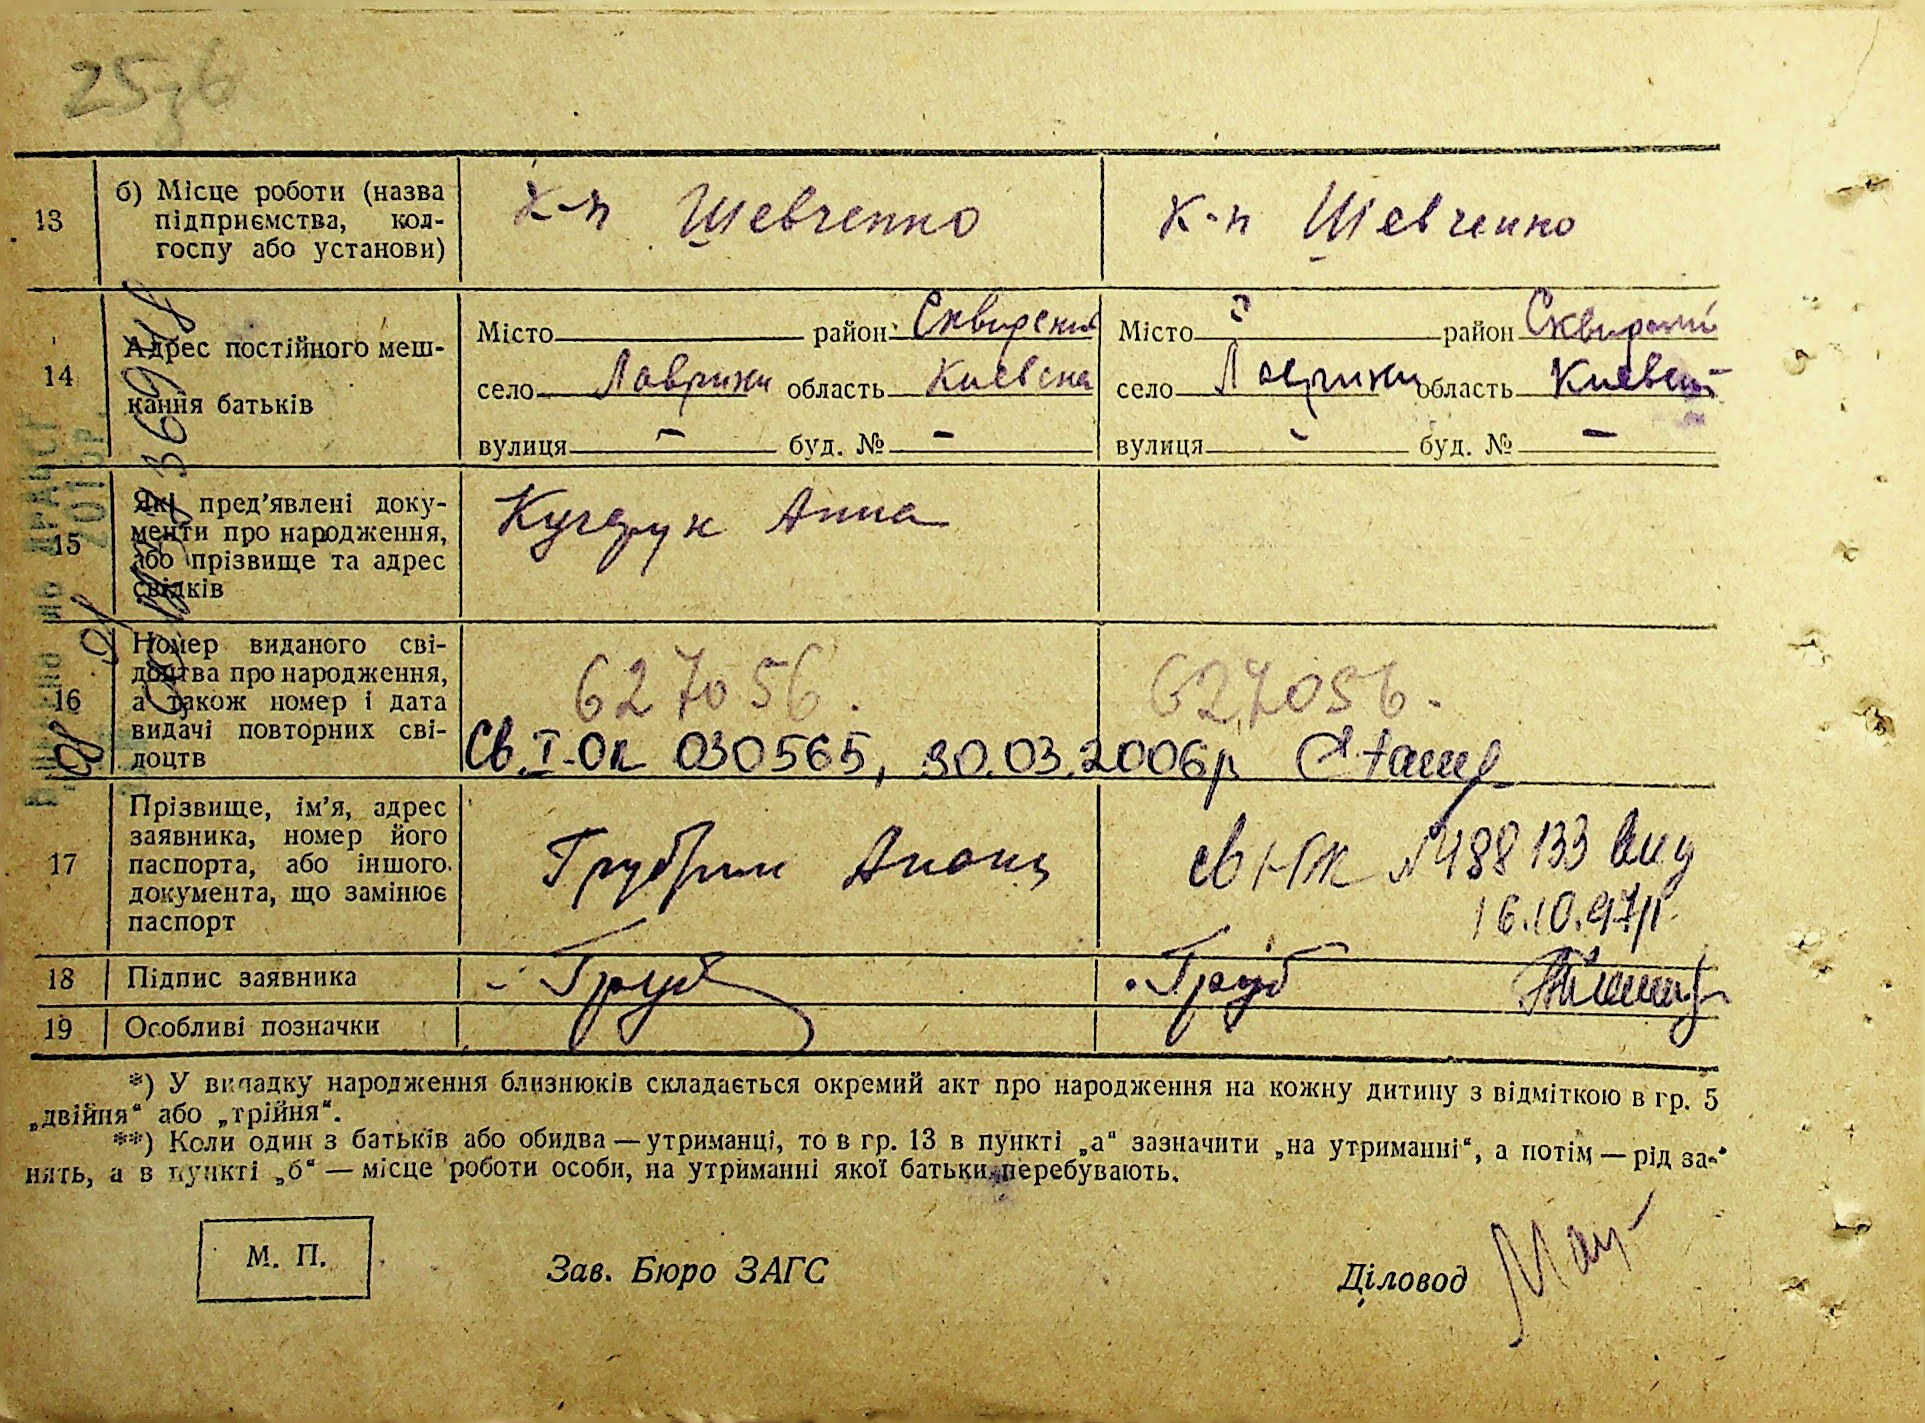 13
б) Місце роботи (назва
підприємства, кол-
госпу або установи)
к-п Шевченко
к-п Шевченко
14
Адрес постійного меш-
кання батьків
Місто район Сквирский
село Лаврики область Киевска
вулиця – буд. № –
Місто – район Сквирский
село Лаврики область Киевск
вулиця – буд. № –
15
Які пред’явлені доку-
менти про народження,
або прізвище та адрес
свідків
Анна
16
Номер виданого сві-
доцтва про народження,
а також номер і дата
видачі повторних сві-
доцтв
627056.
627056.
Св. І-ОК 030565, 30.03.2006р
17
Прізвище, ім’я, адрес
заявника, номер його
паспорта, або іншого
документа, що замінює
паспорт
св НК №488133 вид
16.10.97р.
18
Підпис заявника
– Груб
Груб
19
Особливі позначки
*) У випадку народження близнюків складається окремий акт про народження на кожну дитину з відміткою в гр. 5
„двійня“ або „трійня“.
**) Коли один з батьків або обидва — утриманці, то в гр. 13 в пункті „а“ зазначити „на утриманні“, а потім — рід за-
нять, а в пункті „б“ — місце роботи особи, на утриманні якої батьки перебувають.
М. П.
Зав. Бюро ЗАГС
Діловод